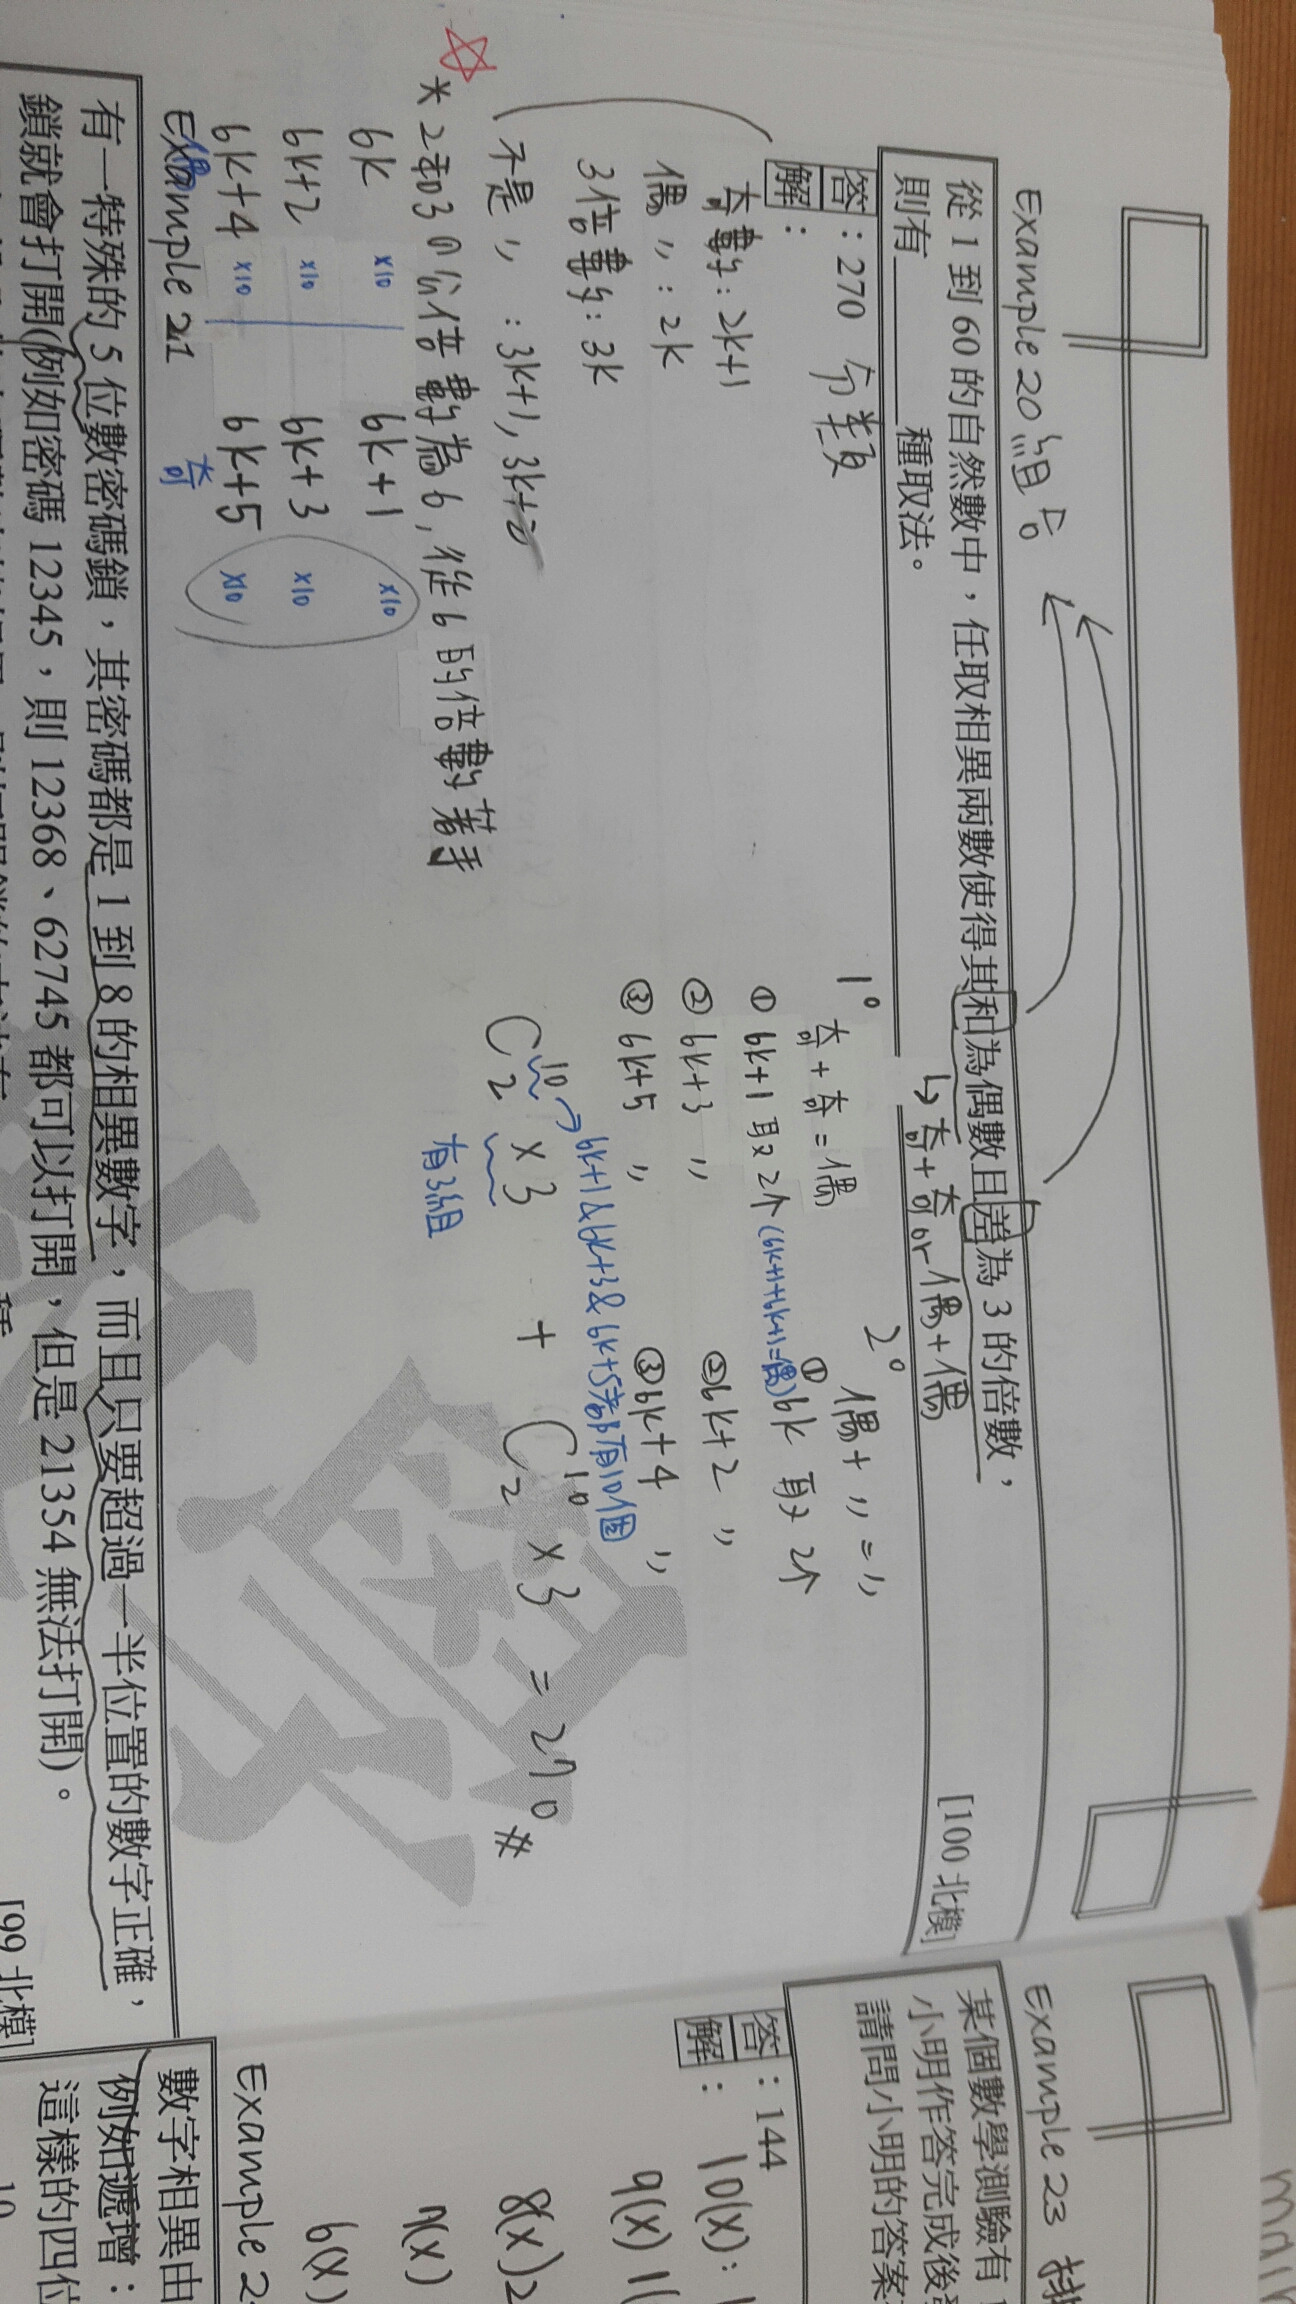 Example 20 組合
從 1 到 60 的自然數中，任取相異兩數使得其和為偶數且差為 3 的倍數，
則有 種取法。
↳ 奇+奇 or 偶+偶
[100 北模]
答：270 分類
解：
奇數：2k+1
偶〃：2k
3倍數：3k
不是〃：3k+1, 3k+2
* 2和3的公倍數為6，從6的倍數著手
6k x10 6k+1 x10
6k+2 x10 6k+3 x10
6k+4 x10 6k+5 x10
偶 奇
1° 奇+奇=偶
① 6k+1 取2个 (6k+1+6k+1=偶)
② 6k+3 〃
③ 6k+5 〃
2° 偶+〃=〃
① 6k 取2个
② 6k+2 〃
③ 6k+4 〃
6k+1&6k+3&6k+5都有10個
C 10 2 x 3 + C 10 2 x 3 = 270 #
有3組
Example 21
有一特殊的 5 位數密碼鎖，其密碼都是 1 到 8 的相異數字，而且只要超過一半位置的數字正確，
鎖就會打開(例如密碼 12345，則 12368、62745 都可以打開，但是 21354 無法打開)。
[99 北模]
Example 23 排
某個數學測驗有
小明作答完成後
請問小明的答案
答：144
解：
10(x):
9(x) 1(
8(x) 2
7(x)
6(x)
Example 2
數字相異由
例如遞增：
這樣的四位